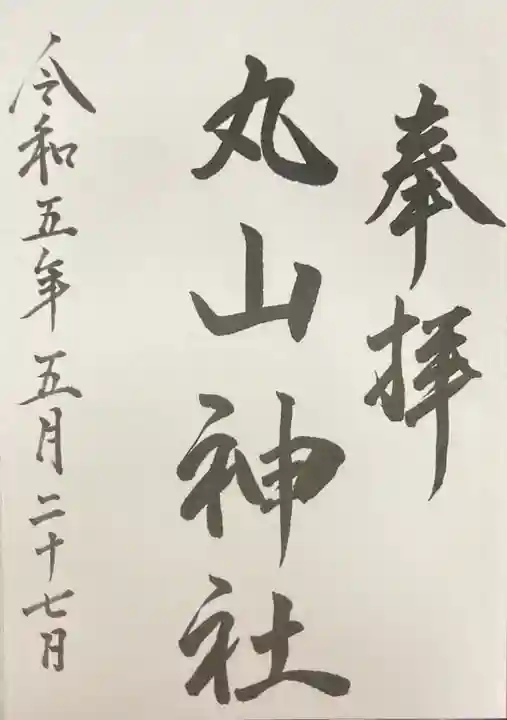 奉拝
丸山神社
令和五年五月二十七月